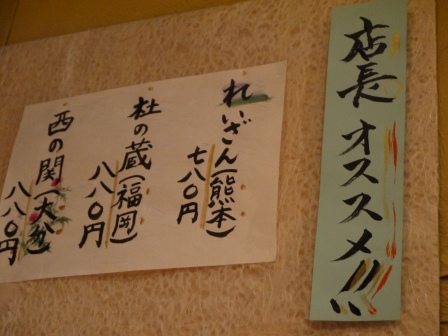 店長オススメ!!
れいざん(熊本)
七八〇円
杜の蔵(福岡)
八八〇円
西の関(大分)
八八〇円